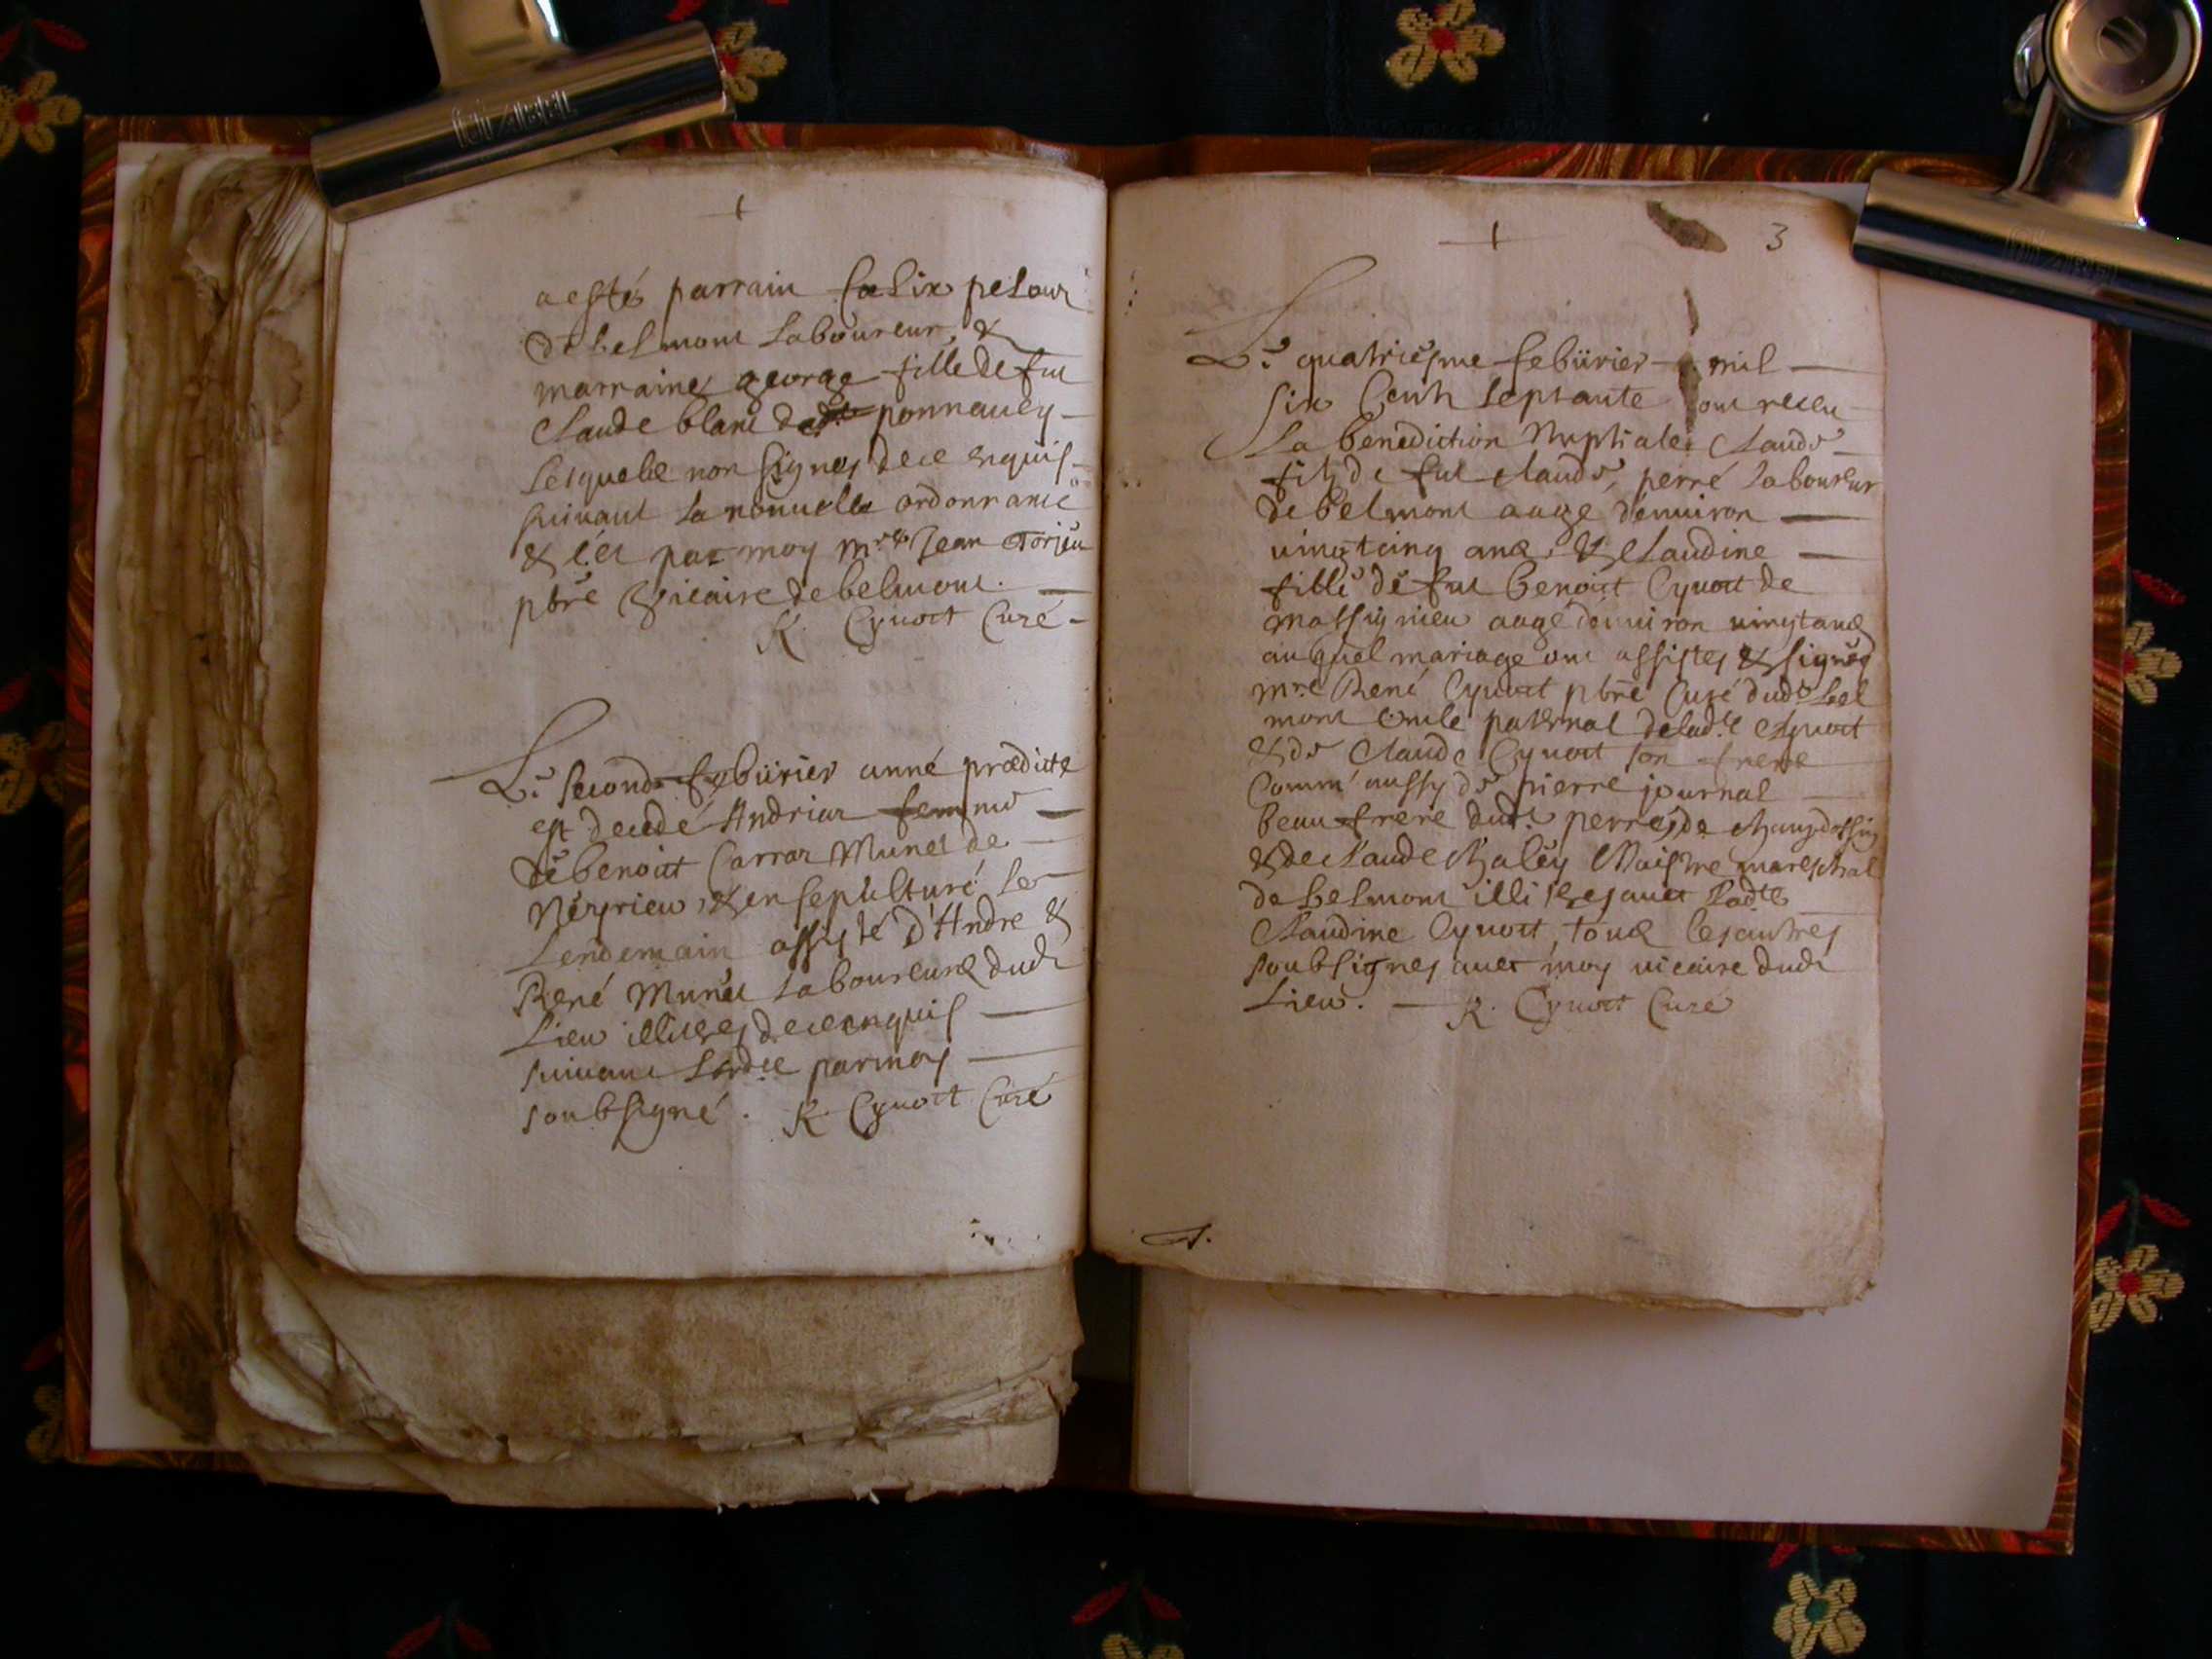 a esté parrain felix pelour
de belmont laboureur, &
marraine george fille de fut
Claude blanc de ponnauey
Lesquelle non signes de ce enquis
suiuant la nouuelle ordonnance
& ce par moy mre Jean
pbre & vicaire de belmont.
R. Cyuoct Curé
Le second febürier anné prædicte
est decedé Andriaz femme
de benoict Carraz Munet de
Neyrieu, & ensepulturé le
Lendemain assisté d'Andre &
René Munet laboureurs dudt
Lieu illitres de ce enquis
suiuant Lordce par moy
soubsigné. R. Cyuoct Curé
3
Le quatriesme febürier mil
six Cents septante ont receu
La benediction Nuptiale Claude
filz de fut claude perret laboureur
de belmont aagé denuiron
uingtcinq ans, & Claudine
fille de fut benoict Cyuoct de
massignieu aagé denuiron uingt ans
auquel mariage ont assistes & signés
mre René Cyuoct pbre Curé dudt bel
mont oncle paternal de ladte Cyuoct
& de Claude Cyuoct son frere
Comm' aussy de pierre journal
beaufrere dudt perret, de
& de Claude Maistre mareschal
de belmont illitres auec Ladte
Claudine Cyuoct, tous les autres
soubsignes auec moy uicaire dudt
Lieu. R. Cyuoct Curé